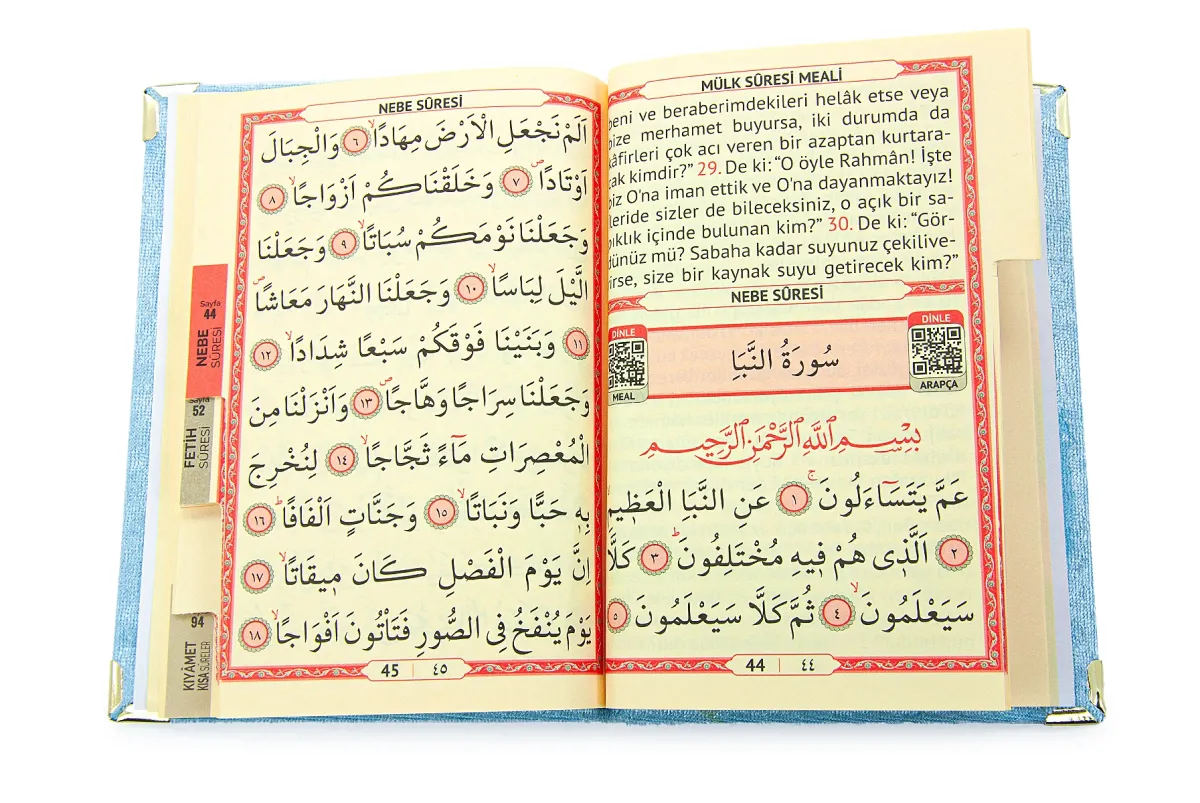 MÜLK SÛRESİ MEALİ
beni ve beraberimdekileri helâk etse veya
bize merhamet buyursa, iki durumda da
kâfirleri çok acı veren bir azaptan kurtara-
cak kimdir?” 29. De ki: “O öyle Rahmân! İşte
biz O'na iman ettik ve O'na dayanmaktayız!
İleride sizler de bileceksiniz, o açık bir sa-
pıklık içinde bulunan kim?” 30. De ki: “Gör-
dünüz mü? Sabaha kadar suyunuz çekilive-
rirse, size bir kaynak suyu getirecek kim?”
NEBE SÛRESİ
DİNLE
DİNLE
سُورَةُ النَّبَأِ
MEAL
ARAPÇA
بِسْمِ اللّٰهِ الرَّحْمٰنِ الرَّحِيمِ
عَمَّ يَتَسَٓاءَلُونَۚ ﴿١﴾ عَنِ النَّبَأِ الْعَظِيمِۙ
﴿٢﴾ اَلَّذ۪ي هُمْ ف۪يهِ مُخْتَلِفُونَۜ ﴿٣﴾ كَلَّا
سَيَعْلَمُونَۙ ﴿٤﴾ ثُمَّ كَلَّا سَيَعْلَمُونَ ﴿٥﴾
44 | ٤٤
NEBE SÛRESİ
اَلَمْ نَجْعَلِ الْاَرْضَ مِهَادًاۙ ﴿٦﴾ وَالْجِبَالَ
اَوْتَادًاۖ ﴿٧﴾ وَخَلَقْنَاكُمْ اَزْوَاجًاۙ ﴿٨﴾
وَجَعَلْنَا نَوْمَكُمْ سُبَاتًاۙ ﴿٩﴾ وَجَعَلْنَا
الَّيْلَ لِبَاسًاۙ ﴿١٠﴾ وَجَعَلْنَا النَّهَارَ مَعَاشًاۖ
﴿١١﴾ وَبَنَيْنَا فَوْقَكُمْ سَبْعًا شِدَادًاۙ ﴿١٢﴾
وَجَعَلْنَا سِرَاجًا وَهَّاجًاۖ ﴿١٣﴾ وَاَنْزَلْنَا مِنَ
الْمُعْصِرَاتِ مَٓاءً ثَجَّاجًاۙ ﴿١٤﴾ لِنُخْرِجَ
بِه۪ حَبًّا وَنَبَاتًاۙ ﴿١٥﴾ وَجَنَّاتٍ اَلْفَافًاۜ ﴿١٦﴾
اِنَّ يَوْمَ الْفَصْلِ كَانَ م۪يقَاتًاۙ ﴿١٧﴾
يَوْمَ يُنْفَخُ فِي الصُّورِ فَتَأْتُونَ اَفْوَاجًاۙ ﴿١٨﴾
45 | ٤٥
Sayfa
44
NEBE
SÛRESİ
Sayfa
52
FETİH
SÛRESİ
94
KIYÂMET
KISA SÛRELER